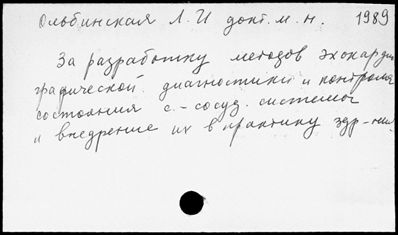 Ольбинская Л. И докт. м. н. 1989
За разработку методов эхокардио
графической диагностики и контроля
состояния с.-сосуд. системы
и внедрение их в практику здр-ния